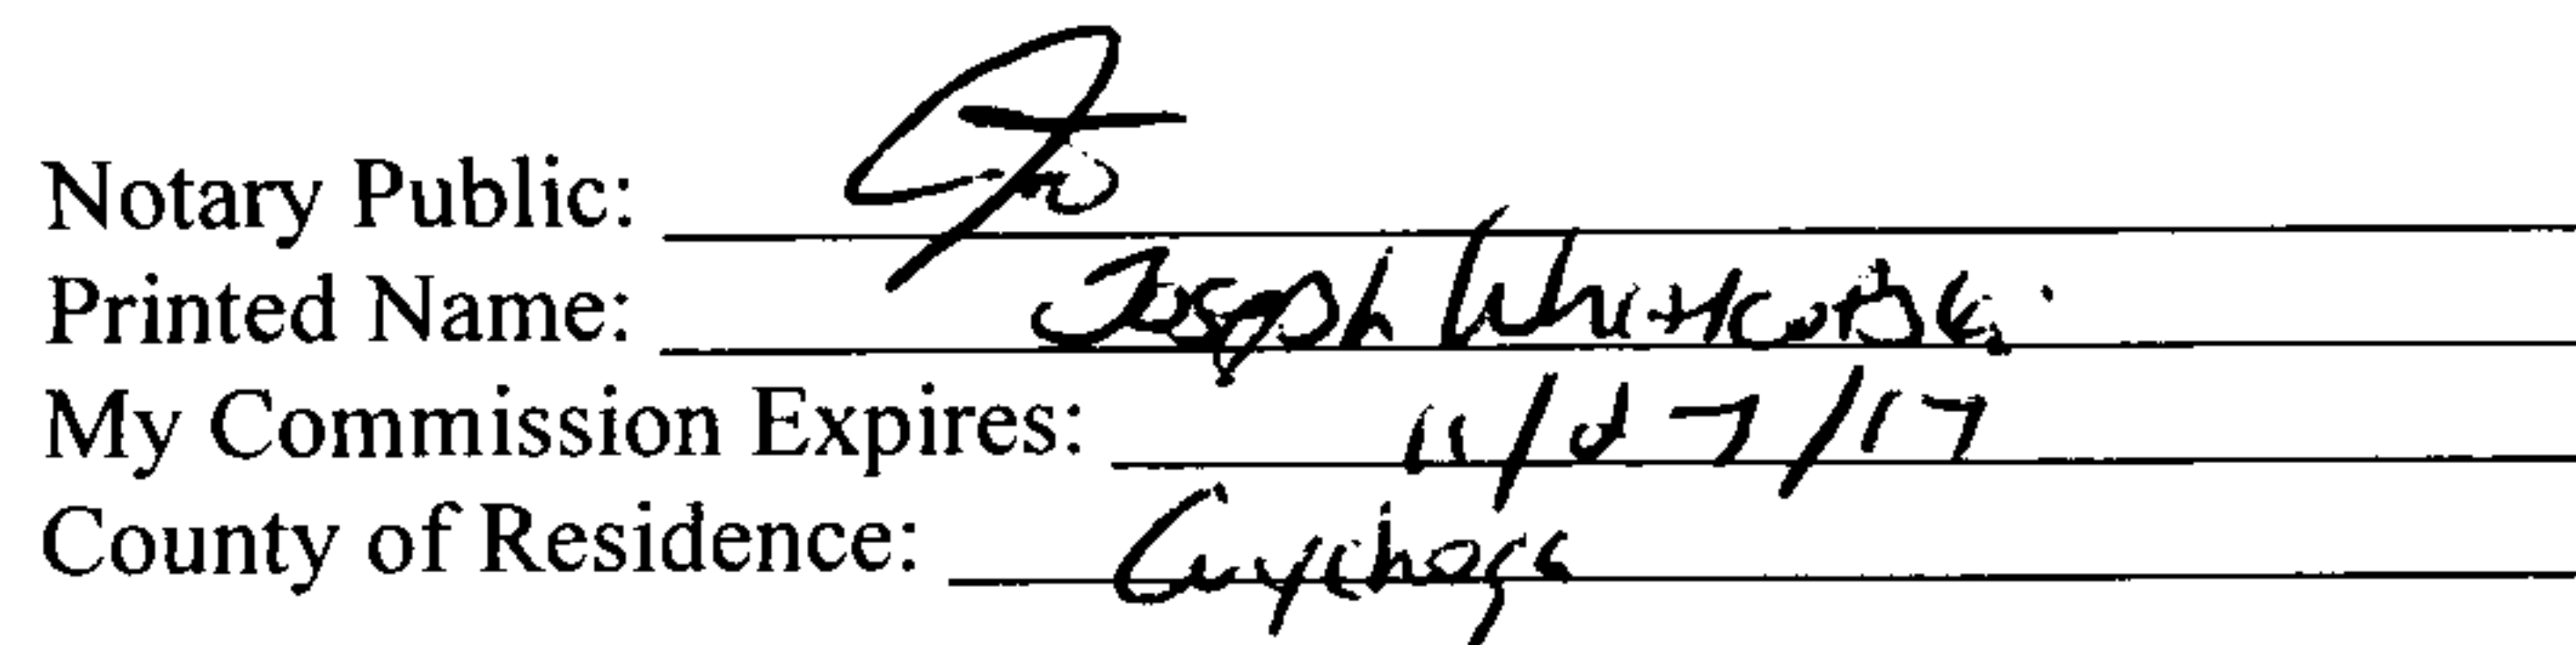 Notary Public:
Printed Name: Joseph Whitcomb
My Commission Expires: 11/27/17
County of Residence: Cuyahoga